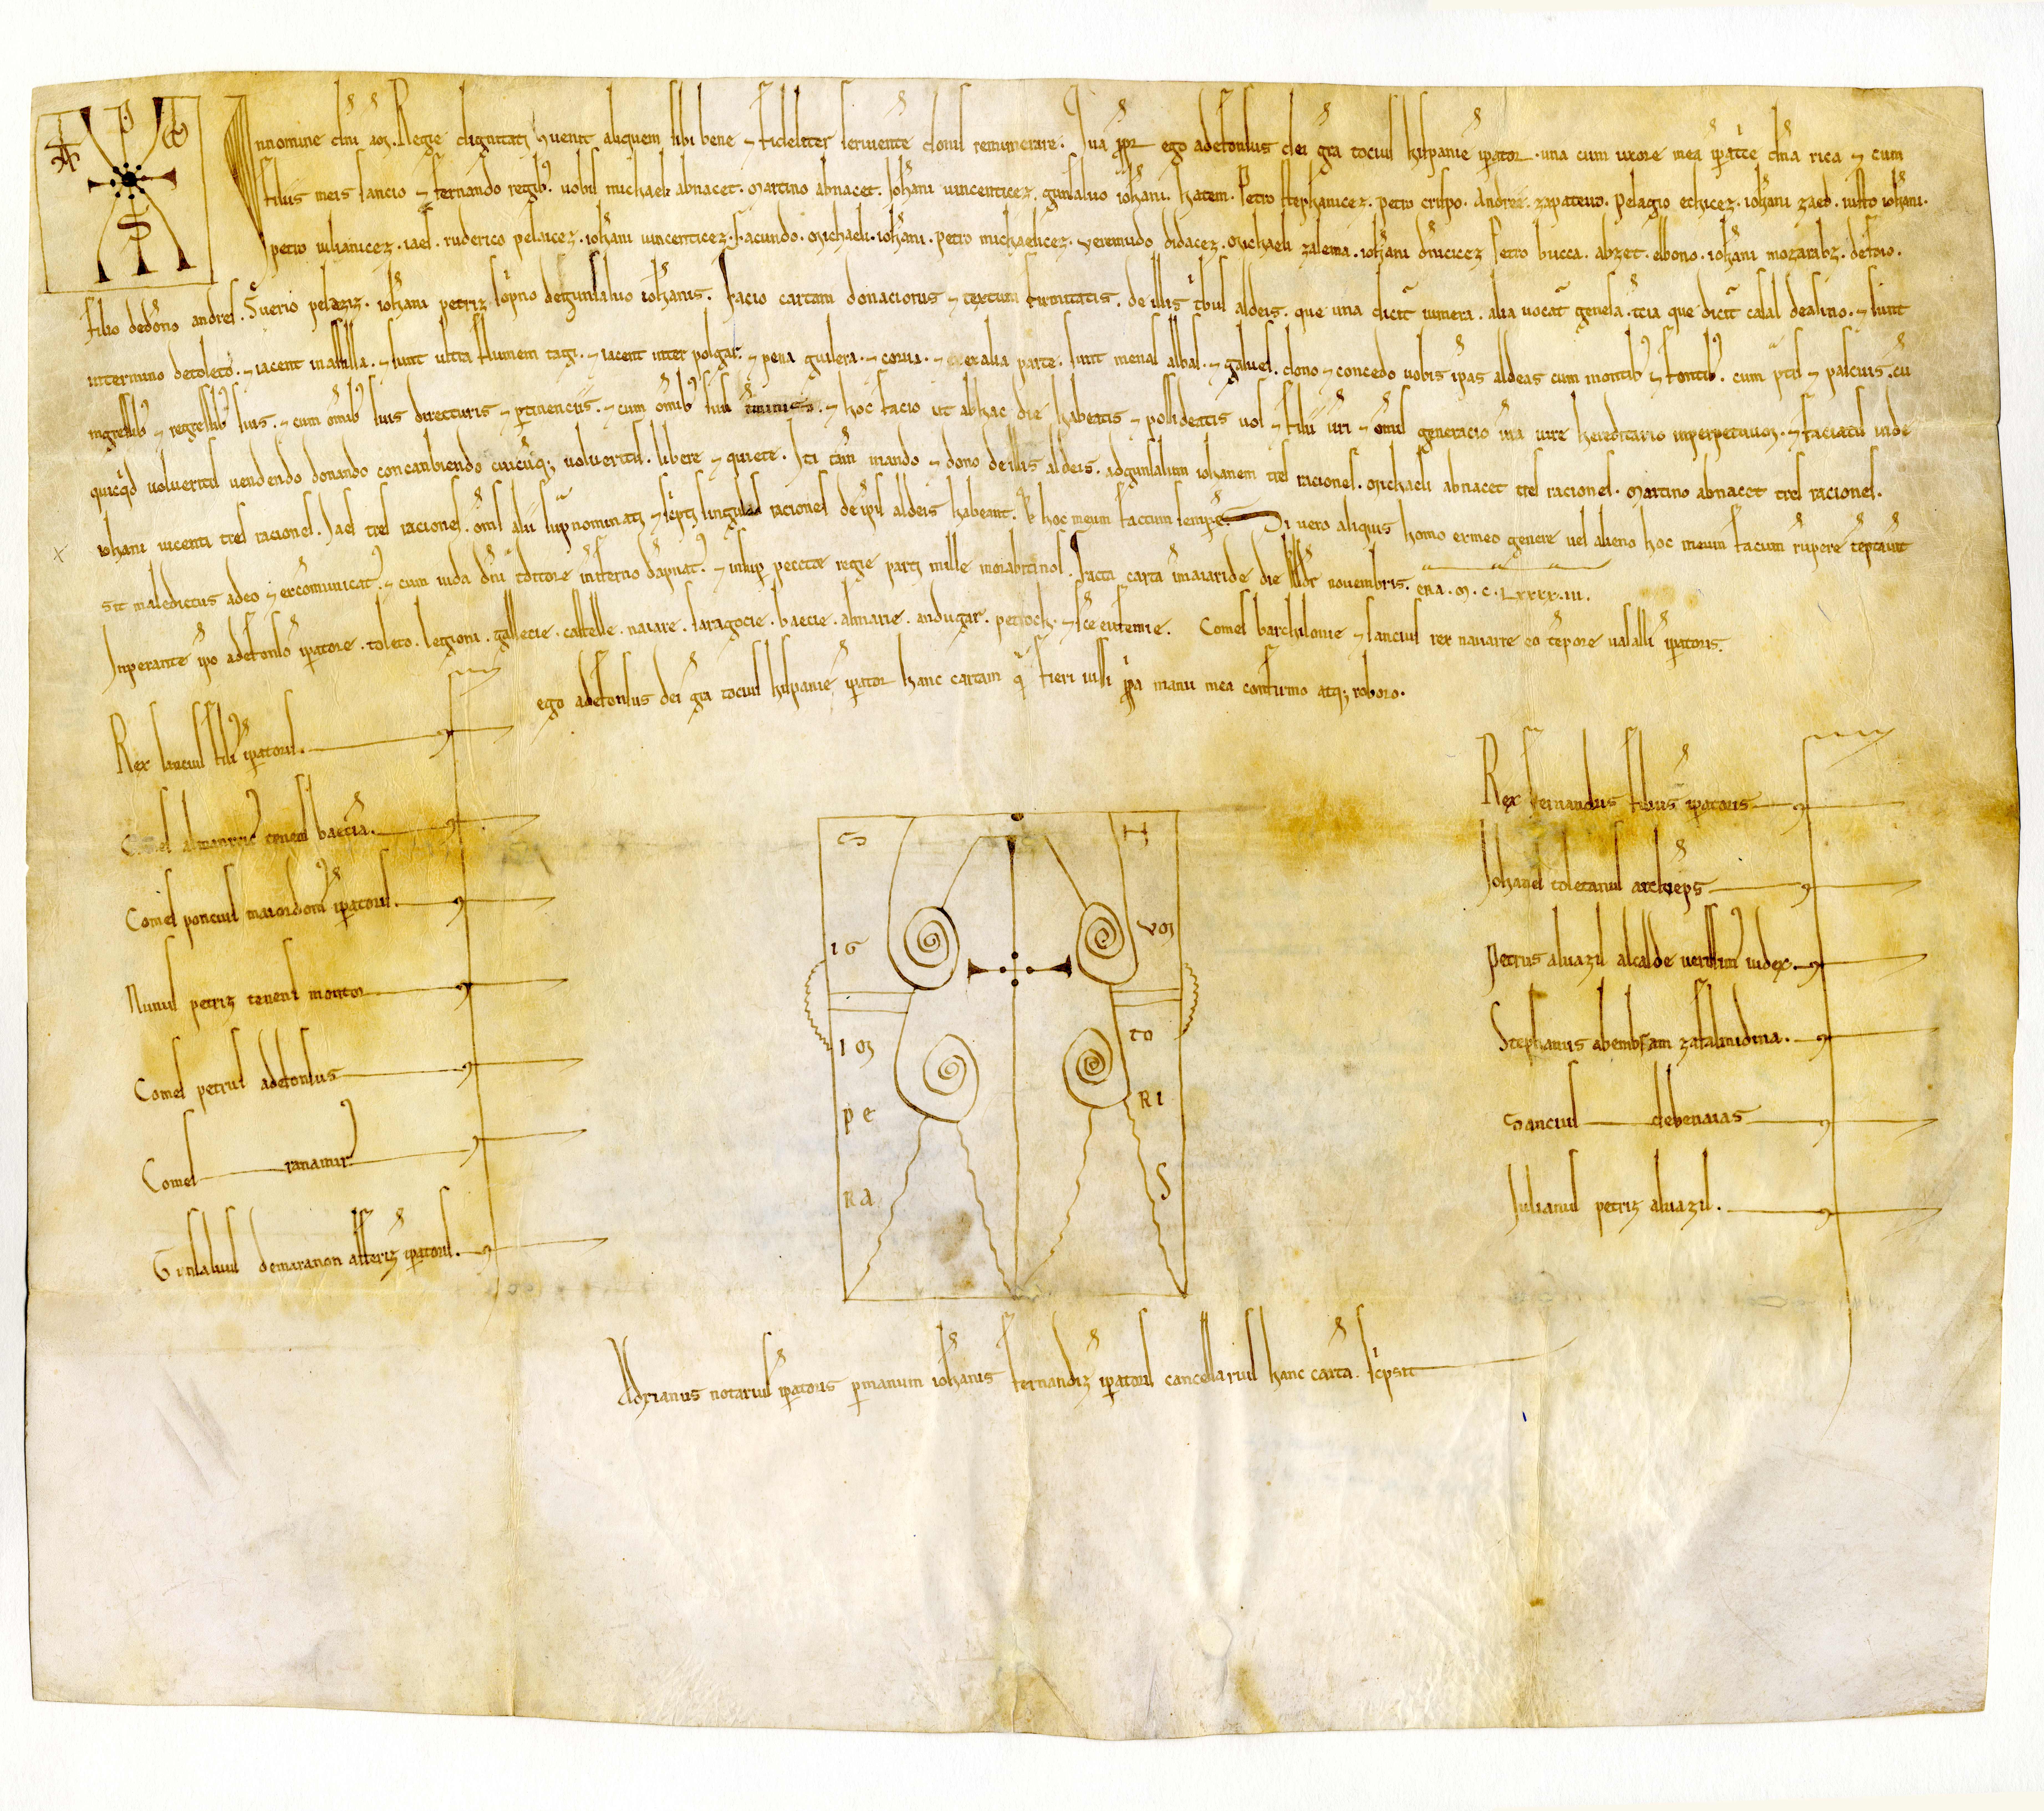 In nomine dñi am̃. Regie dignitatis conuenit aliquem sibi bene et fideliter seruiente donis remunerare. Ea ppr ego adefonsus dei gr̃a tocius hispanie ip̃ator. una cum uxore mea ip̃atce dña rica et cum
filiis meis sancio et fernando regib'. uobis michaeli abnacet. Martino abnacet. Joh̃ani uincenticez. gunsaluo ioh̃ani. hatem. Petro stephanicez. petro crispo. Andree. zapateiro. Pelagio echicez. ioh̃ani zaed. iusto ioh̃ani.
petro iulianicez. iael. ruderico pelaicez. ioh̃ani uincenticez. facundo. Michaeli. ioh̃ani. petro michaelicez. Veremudo didacez. Michaeli zalema. ioh̃ani dñicicez petro bucca. abzet. elbono. ioh̃ani mozarabz. detoio.
filio de dõno andres. Suerio pelaziz. ioh̃ani petriz sop̃no de gunsaluo ioh̃anis. Facio cartam donacionis et textum firmitatis. de illis t̃bus aldeis. que una dicit̃ iumera. alia uocat̃ genesa. t̃cia que dicit̃ casal de asino. et sunt
in termino de toleto. et iacent in assilla. et sunt ultra flumen tagi. et iacent inter polgar. et pena guilera. et corua. et ex alia parte. sunt menas albas. et galues. dono et concedo uobis ip̃as aldeas cum montib' et fontib'. cum p̃tis et pascuis. cũ
ingressib' et regressib' suis. et cum om̃ib' suis directuris et p̃tinenciis. et cum om̃ib' suis t̃minis. et hoc facio ut ab hac die habeatis et possideatis uos et filii ur̃i et om̃is generacio ur̃a iure hereditario in perpetuum. et faciatis inde
quicq̃d uolueritis uendendo donando concanbiendo cuicũq; uolueritis. libere et quiete. Ita tam̃ mando et dono de illis aldeis. ad gunsaluum iohanem tres raciones. Michaeli abnacet tres raciones. Martino abnacet tres raciones.
iohani uicenti tres raciones. Jael tres raciones. om̃s alii sup̃ nominatis et sc̃ptis singulas raciones de ipsis aldeis habeant. et hoc meum factum semper Si uero aliquis homo ex meo genere uel alieno hoc meum factum rupere tẽptauit
sit maledictus a deo et excomunicat'. et cum iuda dñi tditore in inferno dãpnat'. et insup̃ peccta regie parti mille morabitinos. Facta carta in maiaride die Kldr nouembris. era. M. C. LXXXX. iii.
Inperante ip̃o adefonso ip̃atore. toleto. legioni. gallecie. castelle. naiare. saragocie. baecie. almarie. andugar. petroch. et sc̃e eufemie. Comes barchilonie et sancius rex nauarre eo tẽpore uasalli ip̃atoris.
ego adefonsus dei gr̃a tocius hispanie ip̃ator hanc cartam q̃ fieri iussi p̃pia manu mea confirmo atq; roboro.
Rex sancius fili' ip̃atoris.
Comes almanric' tenens baecia.
Comes poncius maiordom' ip̃atoris.
Nunus petriz tenens montor
Comes petrus adefonsus
Comes ranamir'
Gunsaluus de maranon alferiz ip̃atoris.
SIGNUM
IMPERATORIS
Rex fernandus filius ip̃atoris
Johanes toletanus archiep̃s
Petrus aluazil alcalde uerissim' iudex.
Stephanus abembram zafalmidina.
Sancius de benaias
Julianus petriz aluazil.
Adrianus notarius ip̃atoris p̃ manum ioh̃anis fernandiz ip̃atoris cancellarius hanc cartã. sc̃psit